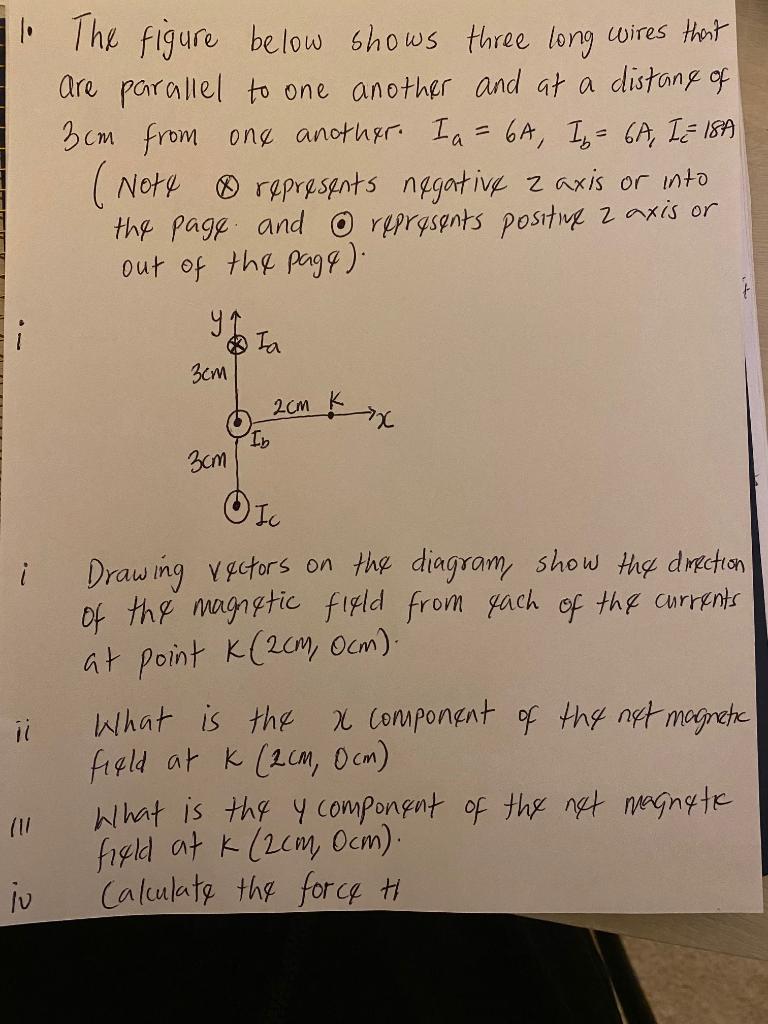 1. The figure below shows three long wires that
are parallel to one another and at a distance of
3cm from one another. Ia = 6A, Ib = 6A, Ic = 18A
(Note ⊗ represents negative z axis or into
the page and ⊙ represents positive z axis or
out of the page).
i
y
Ia
3cm
2cm K
x
Ib
3cm
Ic
i Drawing vectors on the diagram, show the direction
of the magnetic field from each of the currents
at point K(2cm, 0cm).
ii What is the x component of the net magnetic
field at K (2cm, 0cm)
iii What is the y component of the net magnetic
field at K (2cm, 0cm).
iv Calculate the force